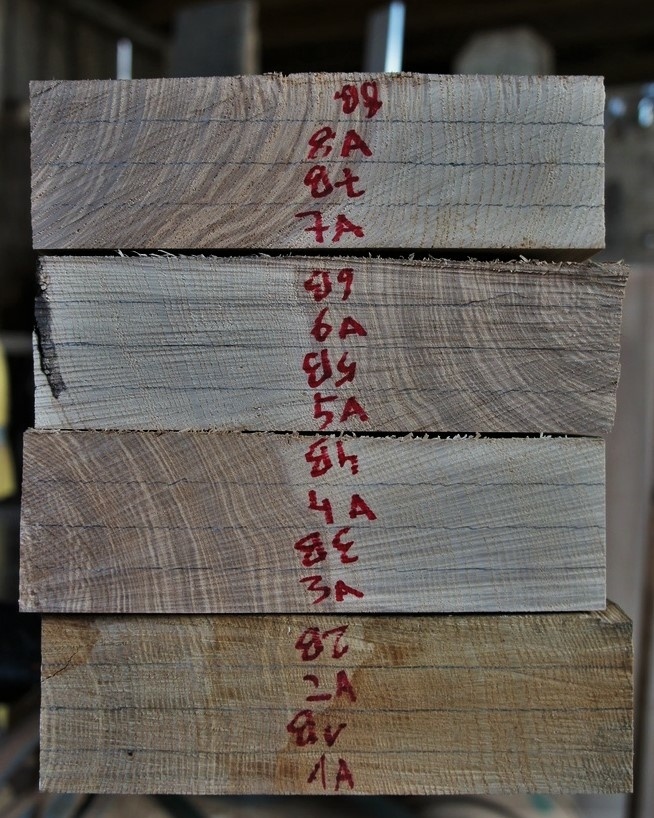 8B
8A
7B
7A
6B
6A
5B
5A
4B
4A
3B
3A
2B
2A
1B
1A